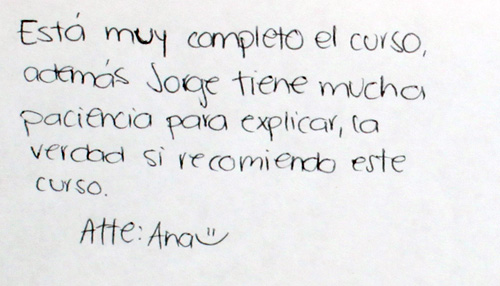 Está muy completo el curso,
además Jorge tiene mucha
paciencia para explicar, la
verdad si recomiendo este
curso.
Atte: Ana